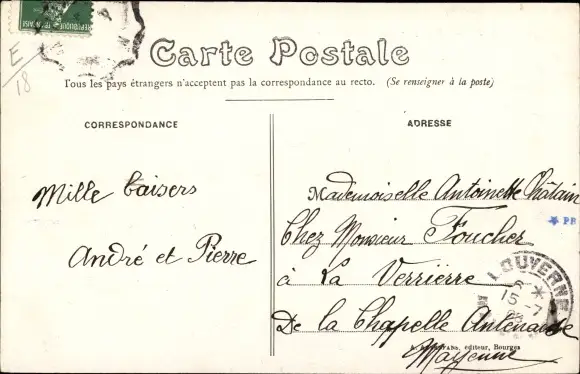 REPUBLIQUE FRANÇAISE
E
18
Carte Postale
Tous les pays étrangers n'acceptent pas la correspondance au recto. (Se renseigner à la poste)
CORRESPONDANCE
Mille baisers
André et Pierre
ADRESSE
Mademoiselle Antoinette Châlain
Chez Monsieur Foucher
à La Verrièrre
De la Chapelle Antenaise
Mayenne
PR
LOUVERNÉ
6 *
15 -7
editeur, Bourges